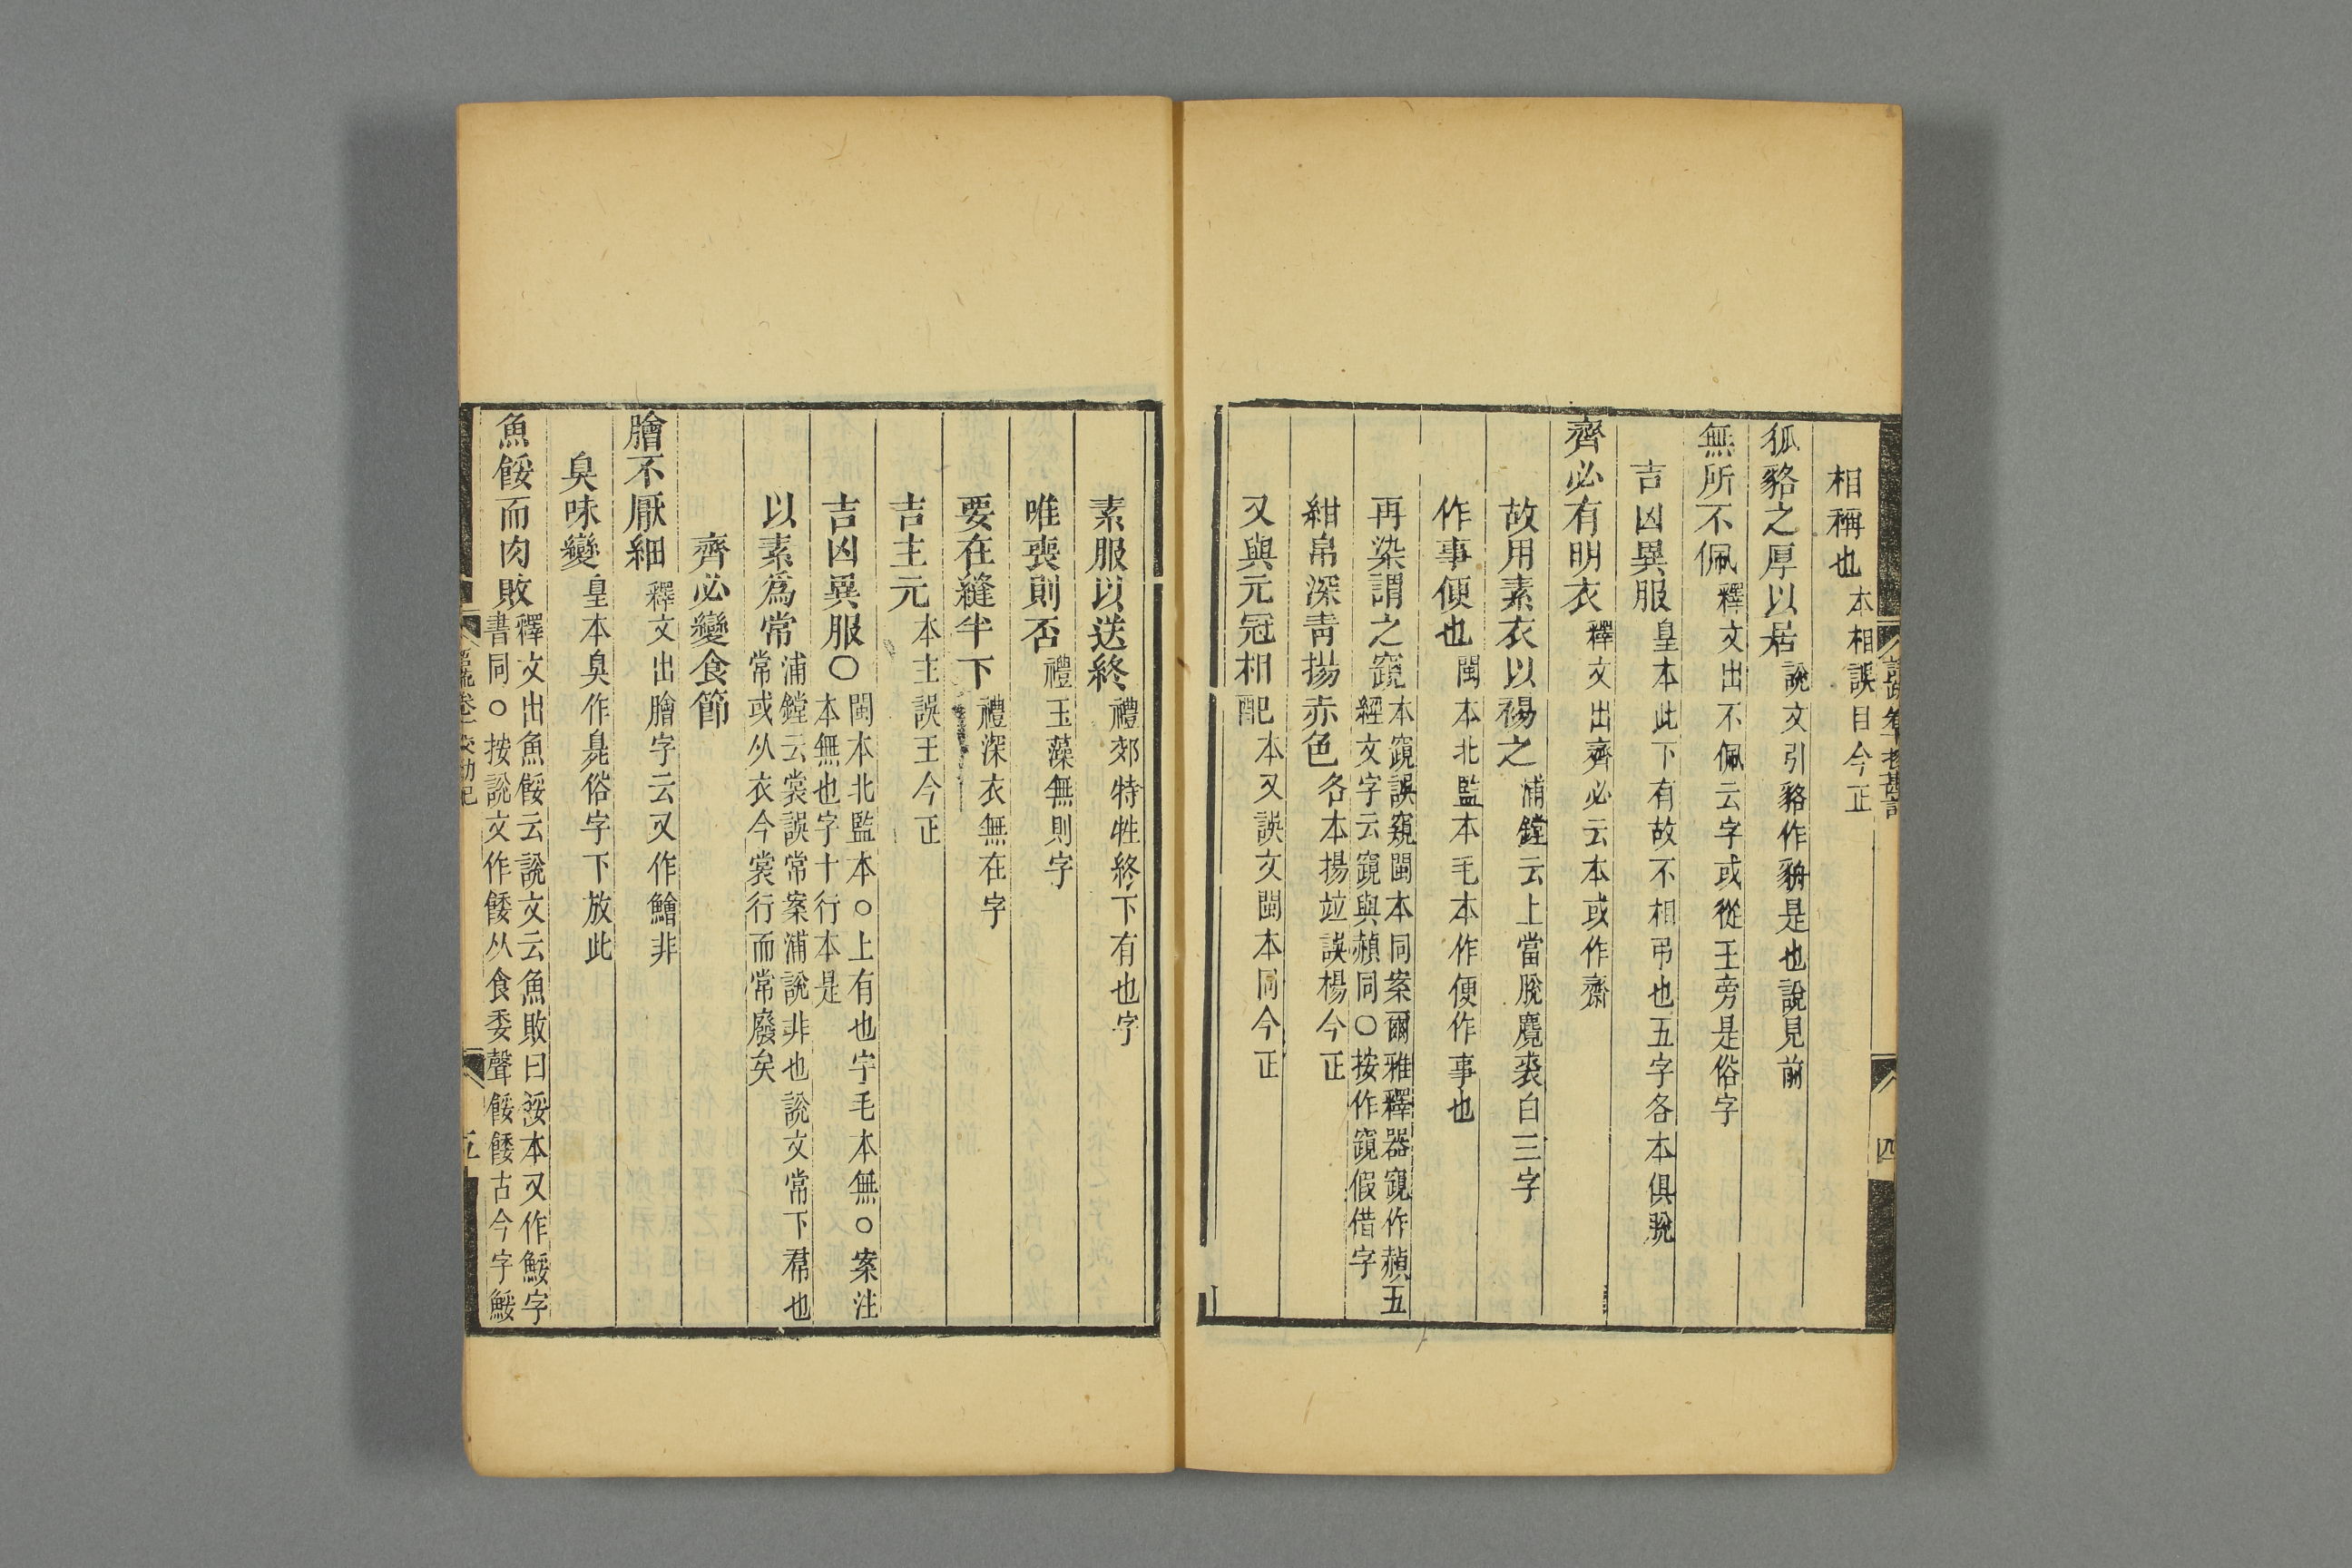 相稱也本相誤目今正
狐貉之厚以居說文引貉作貈是也說見前
無所不佩釋文出不佩云字或從王旁是俗字
吉凶異服皇本此下有故不相弔也五字各本俱脫
齊必有明衣釋文出齊必云本或作齋
故用素衣以裼之浦鏜云上當脫麑裘白三字
作事便也閩本北監本毛本作便作事也
再染謂之窺本窺誤窺閩本同案爾雅釋器窺作赬五
經文字云窺與赬同○按作窺假借字
紺帛深青揚赤色各本揚竝誤楊今正
又與元冠相配本又誤文閩本同今正
素服以送終禮郊特牲終下有也字
唯喪則否禮玉藻無則字
要在縫半下禮深衣無在字
吉主元本主誤王今正
吉凶異服○閩本北監本○上有也字毛本無○案注
本無也字十行本是
以素爲常浦鏜云裳誤常案浦說非也說文常下帬也
常或从衣今裳行而常廢矣
齊必變食節
膾不厭細釋文出膾字云又作鱠非
臭味變皇本臭作臰俗字下放此
魚餒而肉敗釋文出魚餒云說文云魚敗曰餒本又作鮾字
書同○按說文作餧从食委聲餒餧古今字鮾